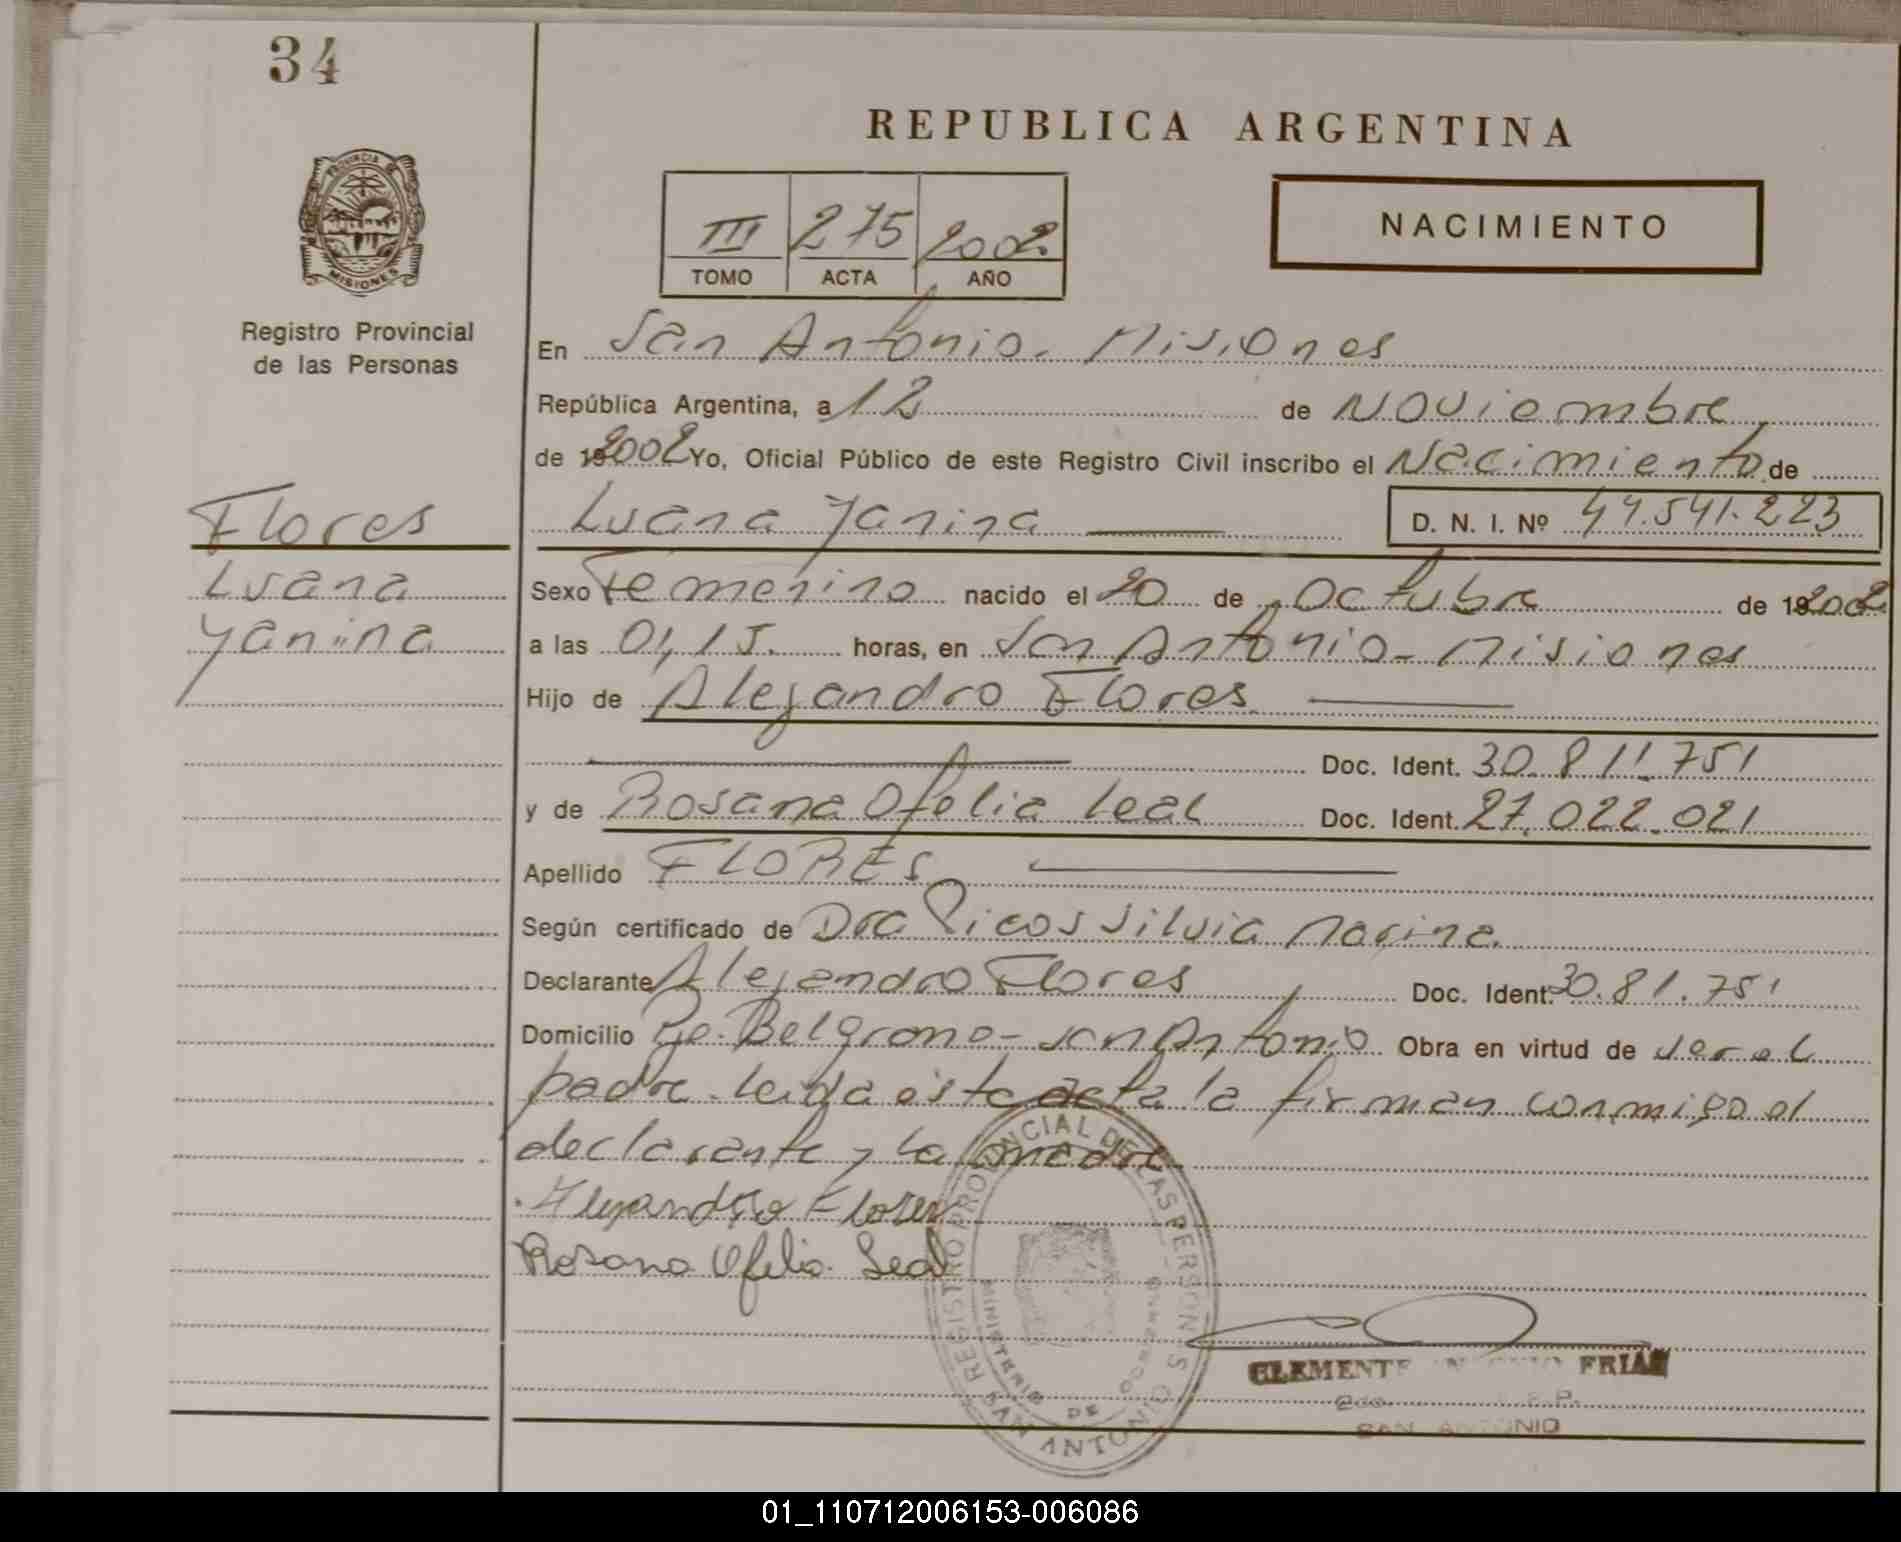 34
REPUBLICA ARGENTINA
PROVINCIA DE
MISIONES
III 275 2002
TOMO ACTA AÑO
NACIMIENTO
Registro Provincial
de las Personas
En San Antonio. Misiones
República Argentina, a 12 de Noviembre
de 192002 Yo, Oficial Público de este Registro Civil inscribo el Nacimiento de
Flores
Luana Yanina
D. N. I. Nº 44.541.223
Luana
Yanina
Sexo Femenino nacido el 20 de Octubre de 192002
a las 01,15. horas, en San Antonio - Misiones
Hijo de Alejandro Flores
Doc. Ident. 30.811.751
y de Rosana Ofelia Leal Doc. Ident. 27.022.021
Apellido FLORES
Según certificado de Dra Picos Silvia Marina.
Declarante Alejandro Flores Doc. Ident. 30.81.751
Domicilio Pje. Belgrano - San Antonio Obra en virtud de ser el
padre. Leida esta acta la firman conmigo el
declarante y la madre.
Alejandro Flores
Rosana Ofelia Leal
REGISTRO PROVINCIAL DE LAS PERSONAS
MINISTERIO DE GOBIERNO
SAN ANTONIO
CLEMENTE FRIAS
SAN ANTONIO
01_110712006153-006086